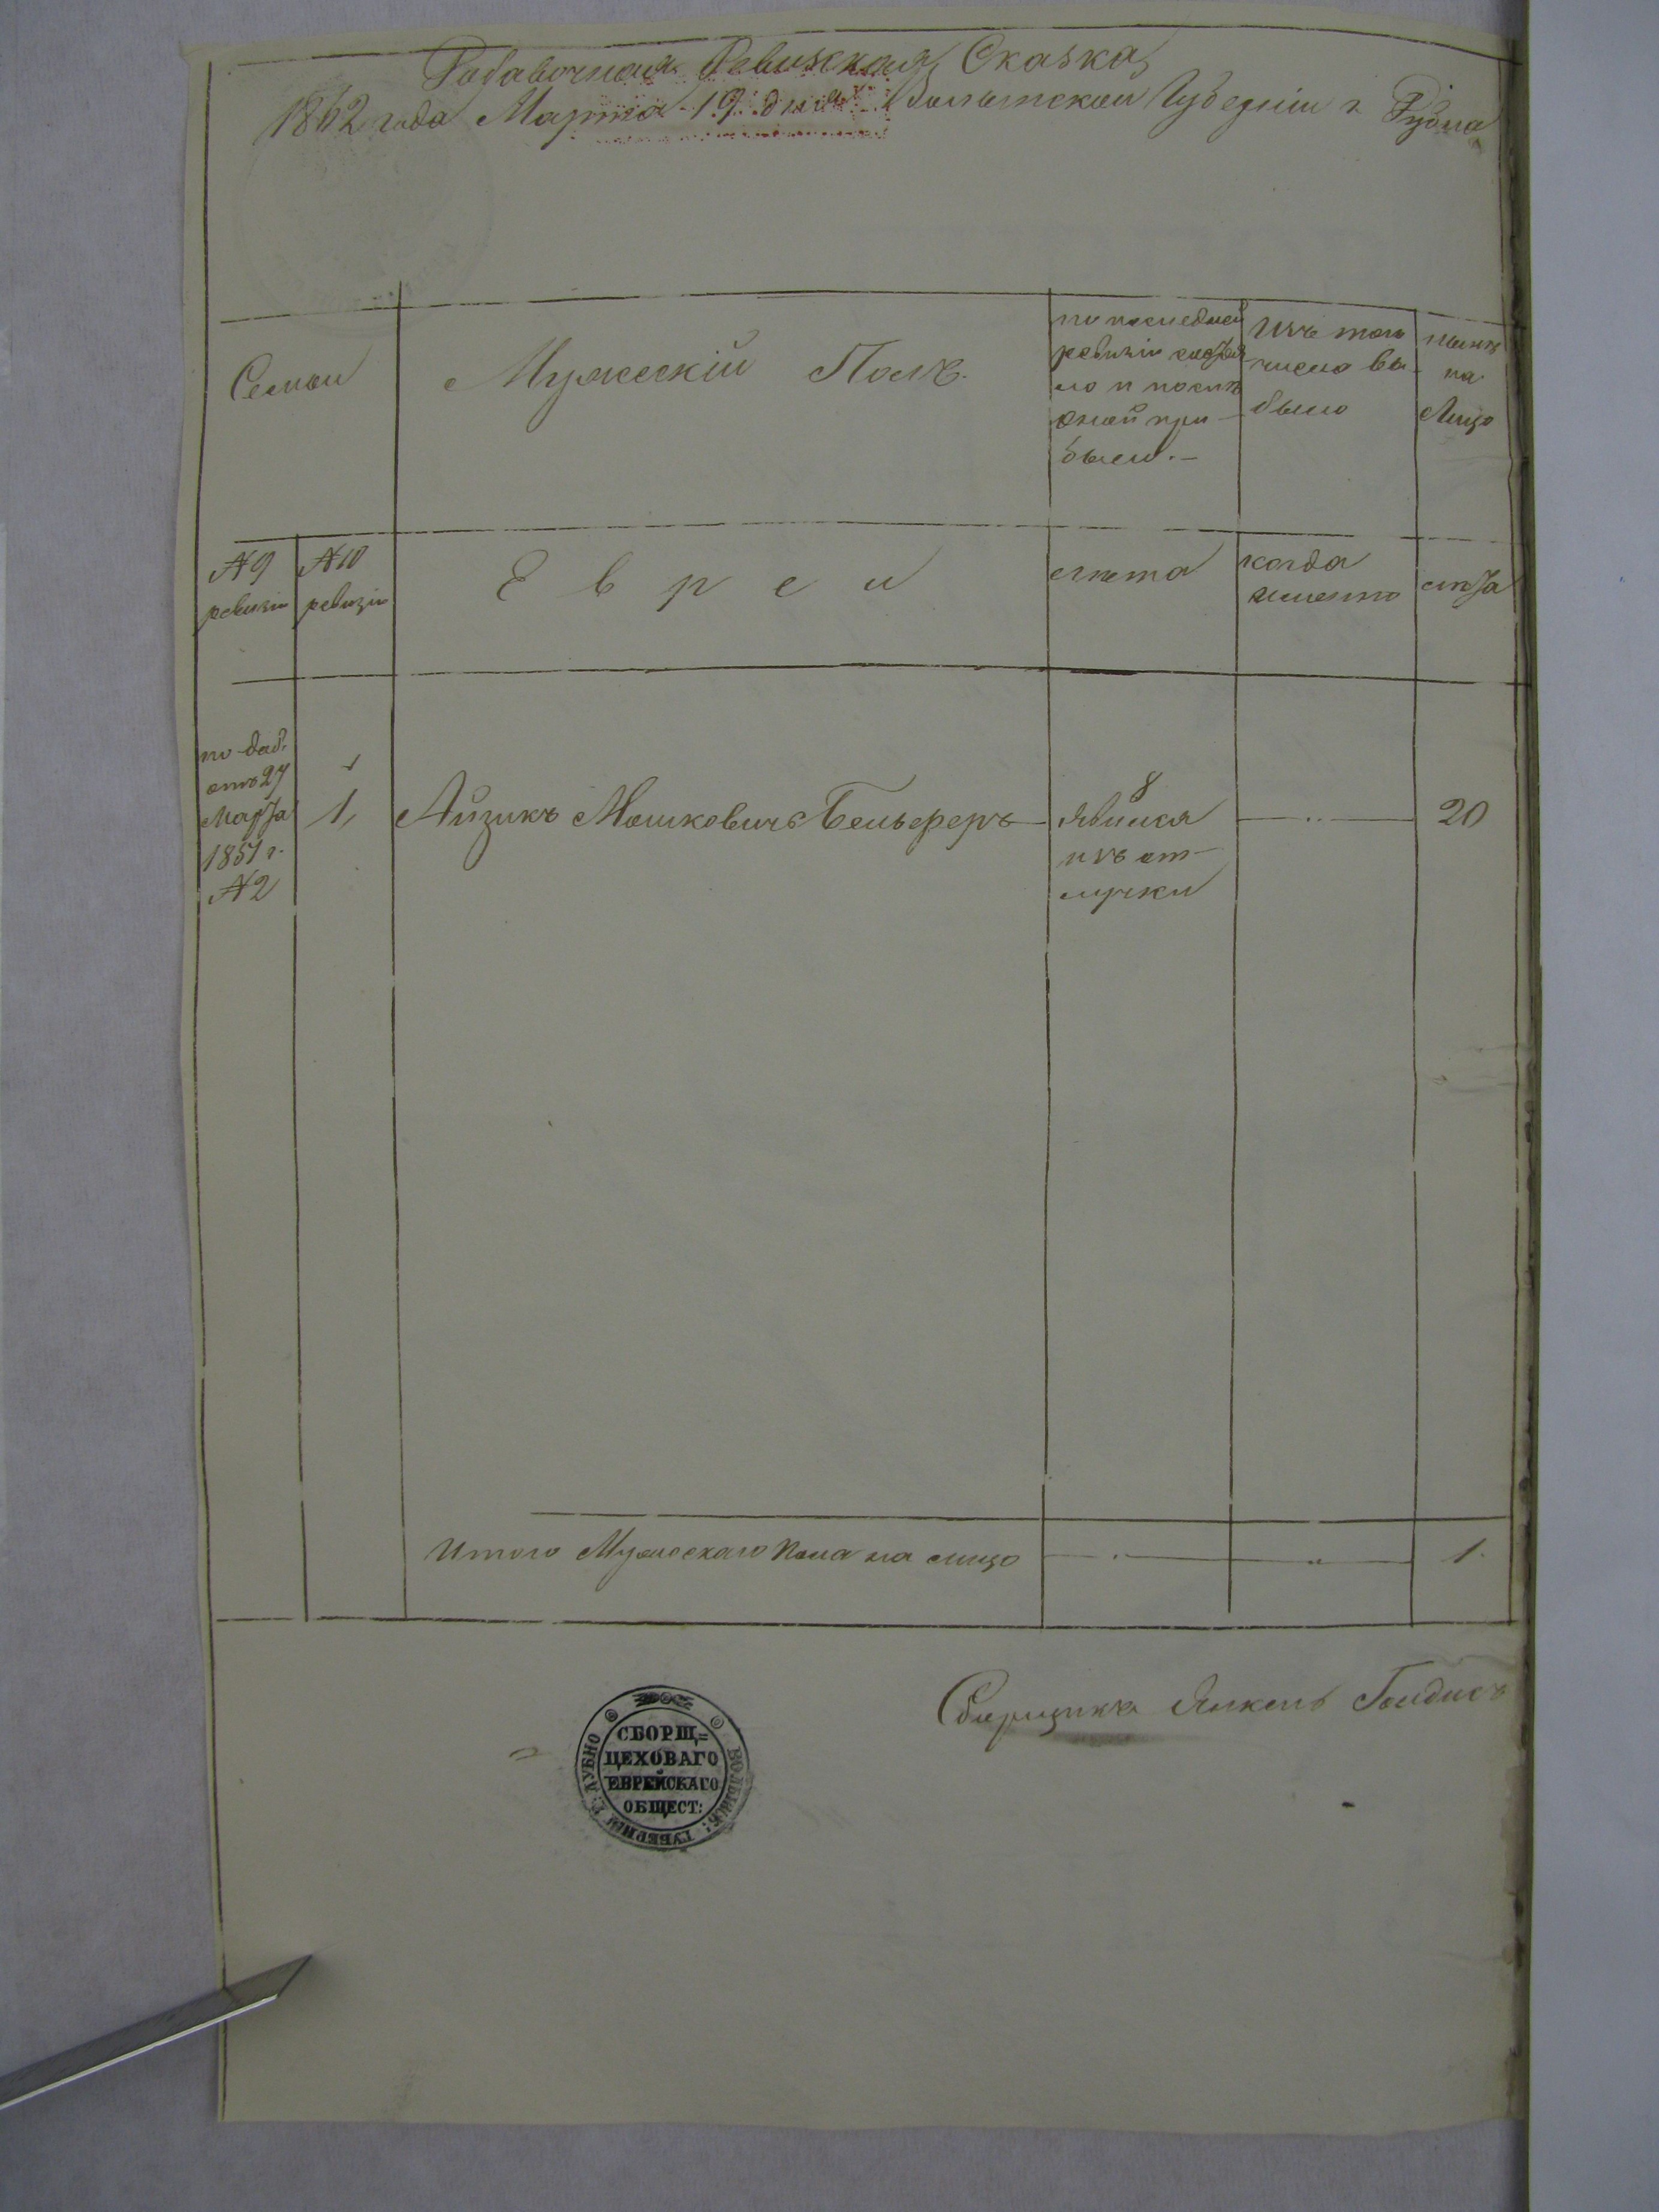 Добавочная Ревизская Сказка
1862 года Марта 19 дня Волынской Губерніи г. Дубна
Семьи
Мужескій Полъ.
по последней
ревизіи состоя
ло и послѣ
оной при-
было.-
Изъ того
числа вы-
было
нынѣ
на
Лицо
№9
ревизіи
№10
ревизіи
Евреи
лѣта
когда
именно
лѣта
по доб.
отъ 27
Марта
1851 г.
№2
1,
Айзикъ Мошковичъ Бельферъ
8
явился
изъ от-
лучки
20
Итого Мужескаго Пола на лицо
1.
Сборщикъ Янкель
СБОРЩ=
ЦЕХОВАГО
ЕВРЕЙСКАГО
ОБЩЕСТ:
ВОЛЫНСК: ГУБЕРНІИ Г. ДУБНО